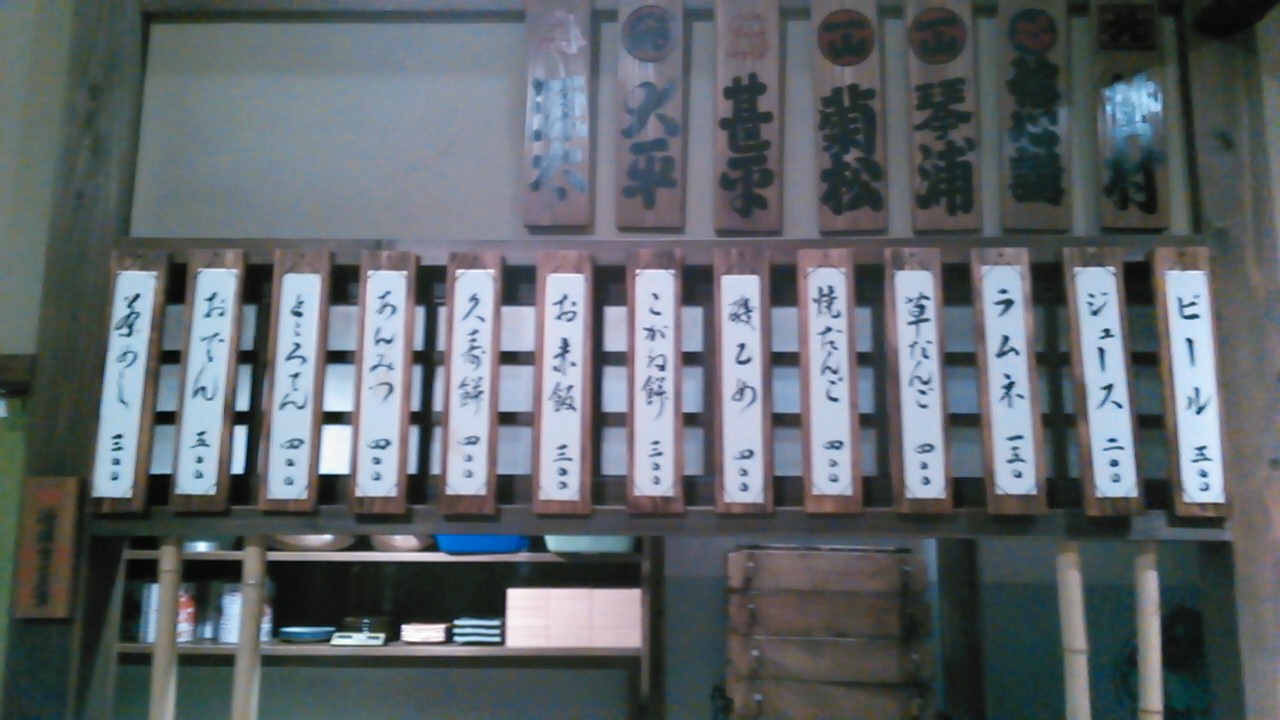 琴浦
菊松
甚平
大平
ビール 五〇〇
ジュース 二〇〇
ラムネ 一五〇
草だんご 四〇〇
焼だんご 四〇〇
磯乙め 四〇〇
こがね餅 三〇〇
お赤飯 三〇〇
久寿餅 四〇〇
あんみつ 四〇〇
ところてん 四〇〇
おでん 五〇〇
茶めし 三〇〇